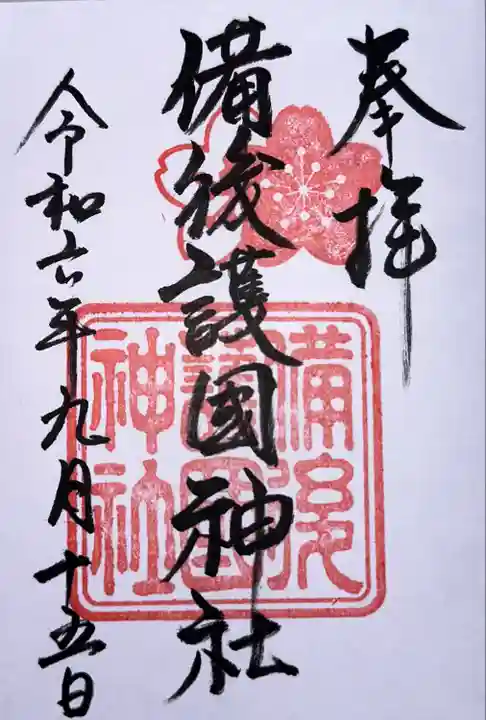 奉拝
備後護國神社
令和六年九月十五日
備後
護国
神社